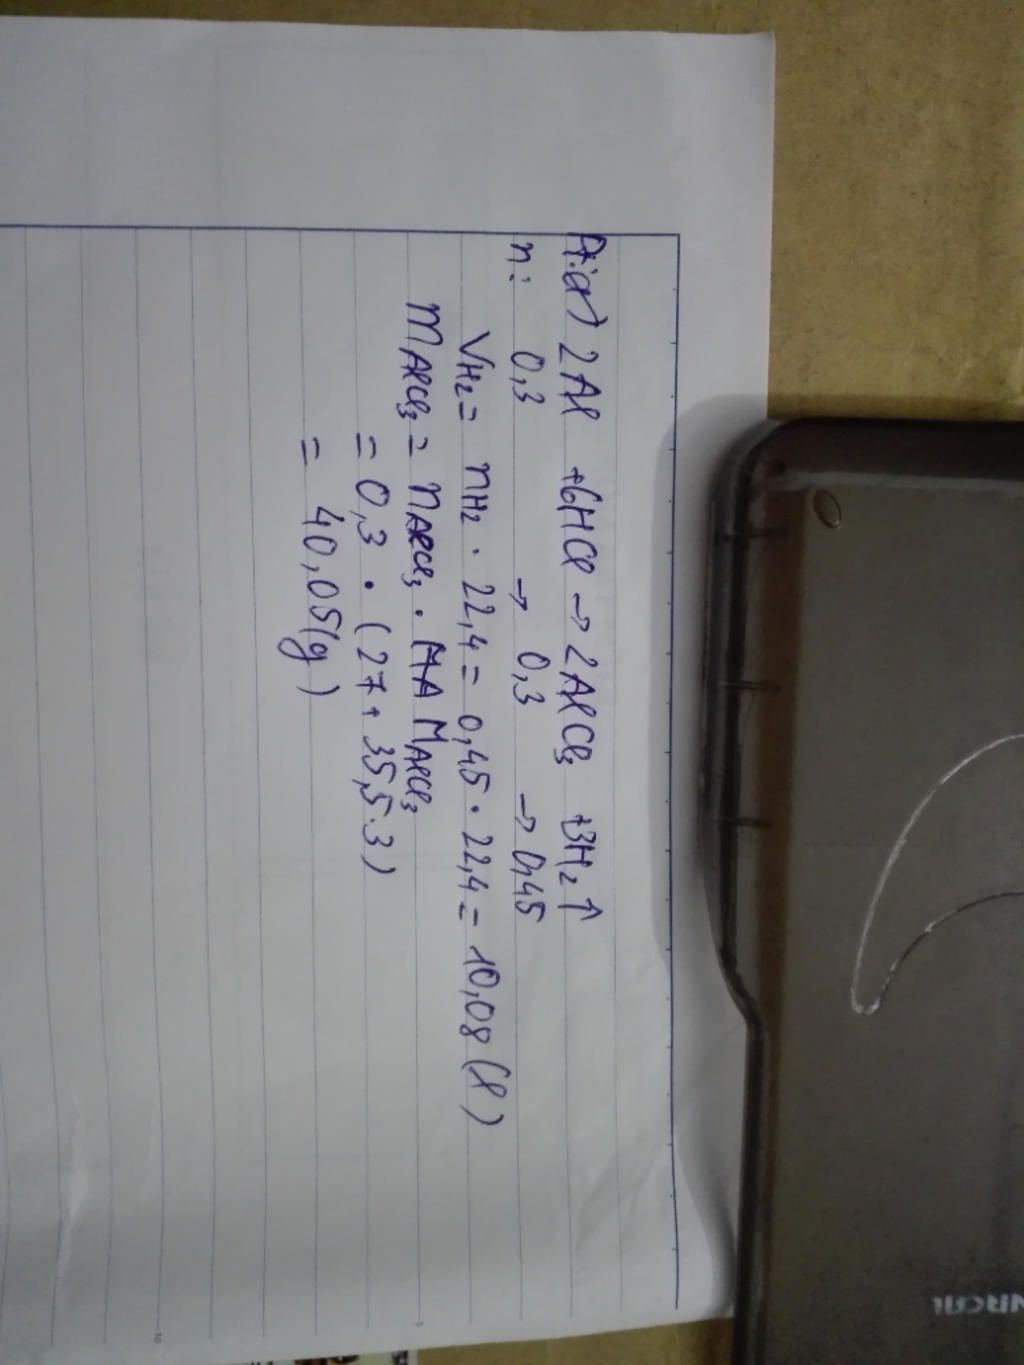 2Al +6HCl → 2AlCl₃ +3H₂ ↑
n: 0,3 → 0,3 → 0,45
VH₂ = nH₂ . 22,4 = 0,45 . 22,4 = 10,08 (l)
mAlCl₃ = nAlCl₃ . MAlCl₃
= 0,3 . (27 + 35,5.3)
= 40,05(g)